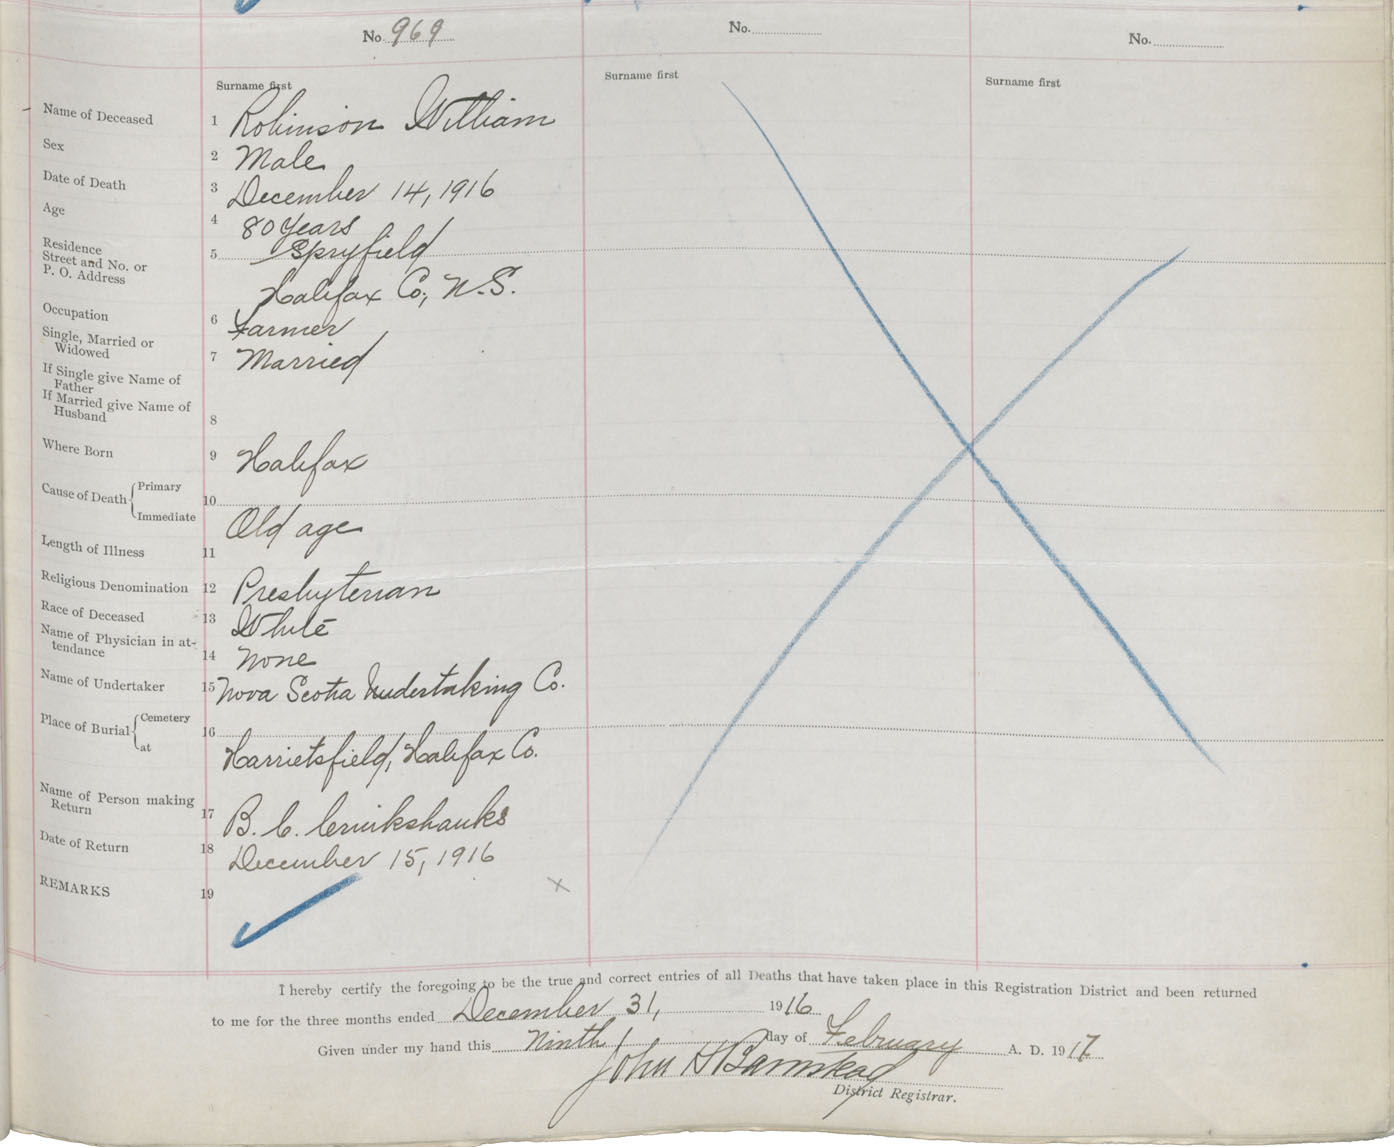 No. 969
No.
No.
Surname first
Surname first
Surname first
Name of Deceased 1 Robinson William
Sex 2 Male
Date of Death 3 December 14, 1916
Age 4 80 Years
Residence
Street and No. or
P. O. Address
5 Spryfield
Halifax Co, N.S.
Occupation 6 Farmer
Single, Married or
Widowed
7 Married
If Single give Name of
Father
If Married give Name of
Husband
8
Where Born 9 Halifax
Cause of Death { Primary
Immediate
10
Old age
Length of Illness 11
Religious Denomination 12 Presbyterian
Race of Deceased 13 White
Name of Physician in at-
tendance
14 None
Name of Undertaker 15 Nova Scotia Undertaking Co.
Place of Burial { Cemetery
at
16
Harrietsfield, Halifax Co.
Name of Person making
Return
17 B. C. Cruikshanks
Date of Return 18 December 15, 1916
REMARKS 19
I hereby certify the foregoing to be the true and correct entries of all Deaths that have taken place in this Registration District and been returned
to me for the three months ended December 31, 1916
Given under my hand this Ninth day of February A. D. 1917
John H Barnstead
District Registrar.